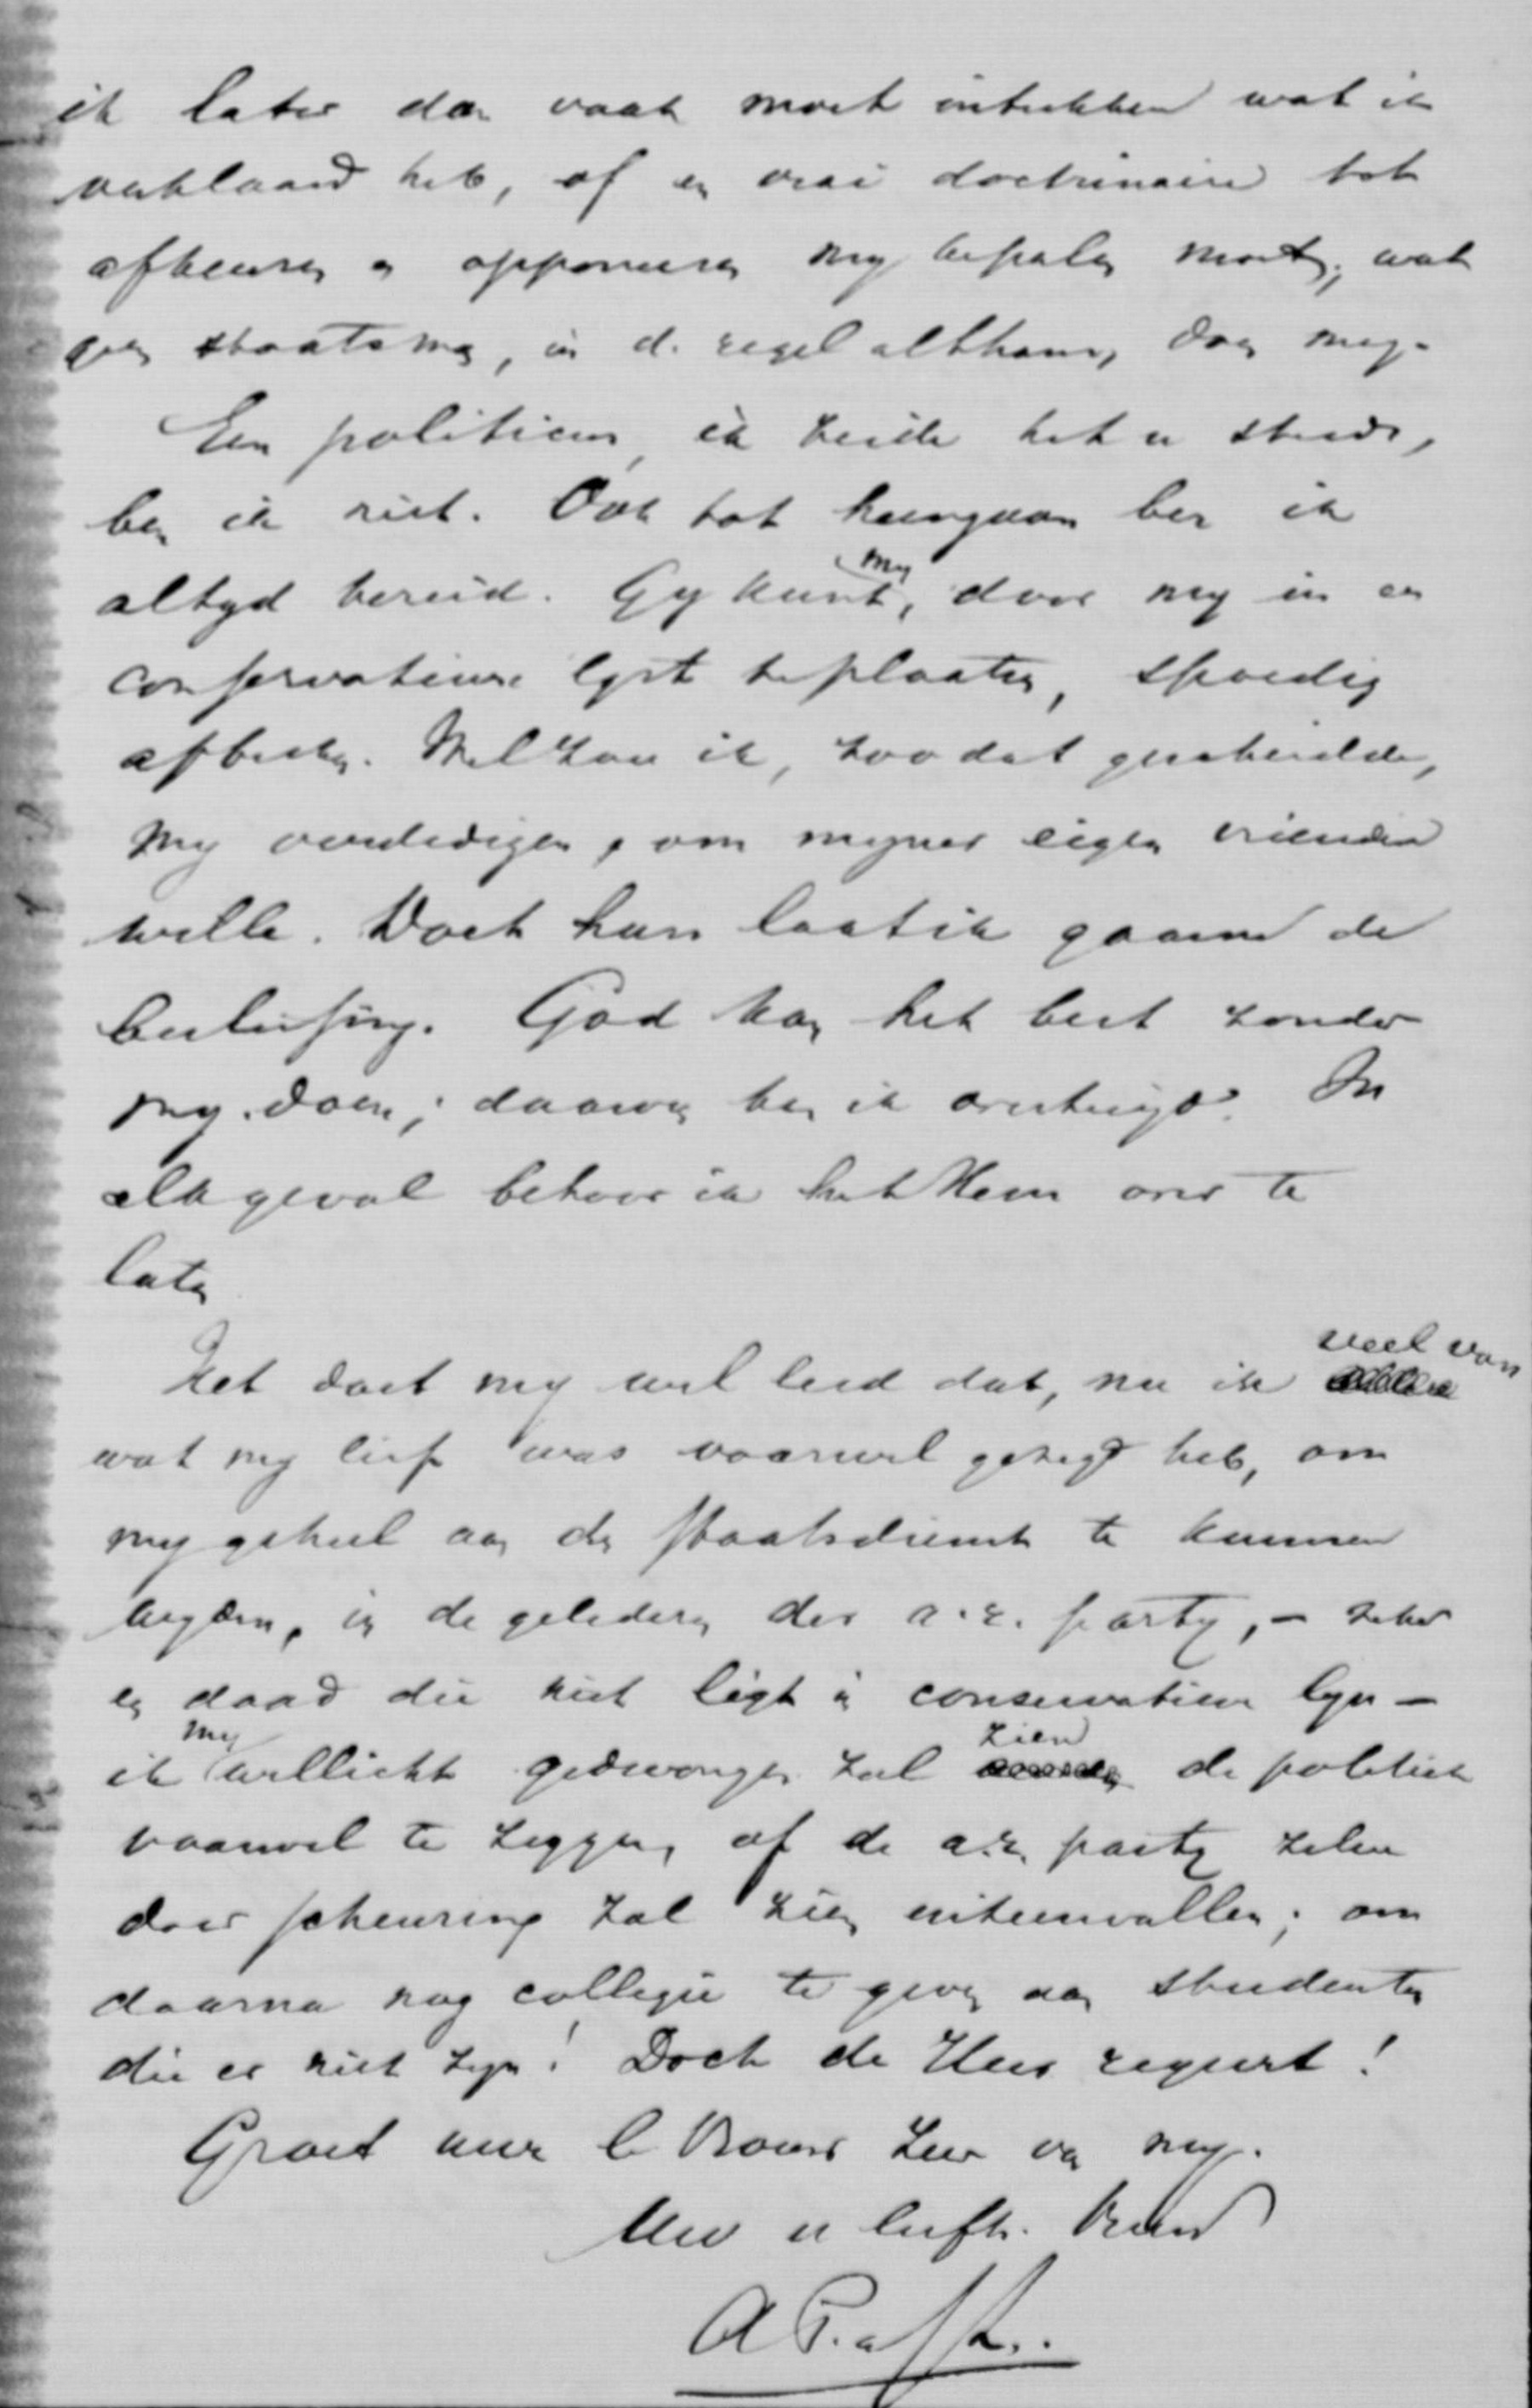 ik later dan vaak moet intrekken wat ik
verklaard heb, of en vrai doctrinaire tot
afkeuren en opponeeren my bepalen moet, wat
geen staatsman, in de regel althans, doen mag.
Een politicus, ik zeide het u steeds,
ben ik niet. Ook tot heengaan ben ik
altyd bereid. Gy kunt my, door my in een
conservatieve lyst te plaatsen, spoedig
afbreken. Wel zou ik, zoo dat geschiedde,
my verdedigen, om myner eigen vrienden
wille. Doch hun laat ik gaarne de
beslissing. God kan het best zonder
my doen; daarvan ben ik overtuigd. In
elk geval behoor ik het Hem over te
laten
Het doet my wel leed dat, nu ik veel van
wat my lief was vaarwel gezegd heb, om
my geheel aan den Staatsdienst te kunnen
wyden, in de gelederen der a.r. party, – zeker
een daad die niet ligt in conservatieve lyn –
ik my wellicht gedwongen zal zien de politiek
vaarwel te zeggen, of de a.r. party zelve
door scheuring zal zien uiteenvallen; om
daarna nog collegie te geven aan studenten
die er niet zyn! Doch de Heer regeert!
Groet uwe l. Vrouw zeer van my.
Uw u liefh. Vriend